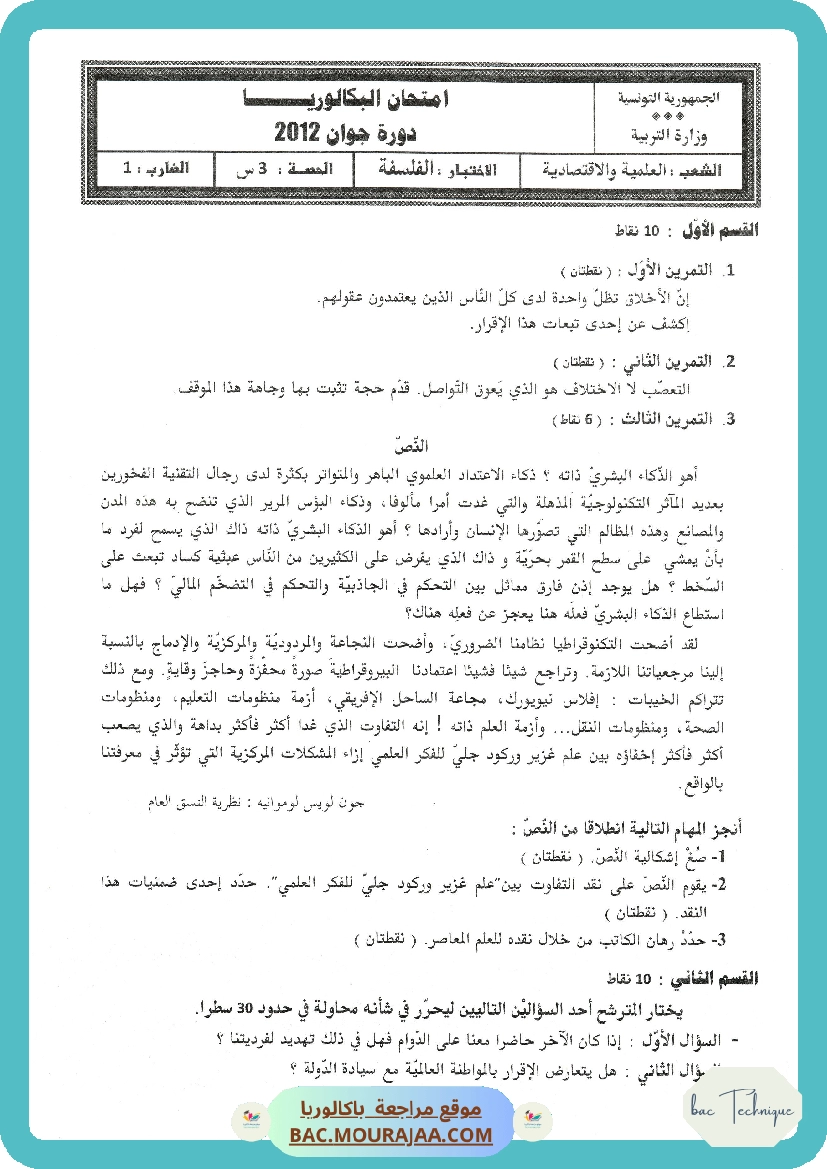 الجمهورية التونسية
وزارة التربية
امتحان البكالوريـــــا
دورة جوان 2012
الشعب : العلمية والاقتصادية
الاختبار : الفلسفة
الحصة : 3 س
الضارب : 1
القسم الأوّل : 10 نقاط
1. التمرين الأوّل : ( نقطتان )
إنّ الأخلاق تظلّ واحدة لدى كلّ النّاس الذين يعتمدون عقولهم.
إكشف عن إحدى تبعات هذا الإقرار.
2. التمرين الثاني : ( نقطتان )
التعصّب لا الاختلاف هو الذي يَعوق التّواصل. قدّم حجة تثبت بها وجاهة هذا الموقف.
3. التمرين الثالث : ( 6 نقاط)
النّصّ
أهو الذّكاء البشريّ ذاته ؟ ذكاء الاعتداد العلموي الباهر والمتواتر بكثرة لدى رجال التقنية الفخورين
بعديد المآثر التكنولوجيّة المذهلة والتي غدت أمرا مألوفا، وذكاء البؤس المرير الذي تنضح به هذه المدن
والمصانع وهذه المظالم التي تصوّرها الإنسان وأرادها ؟ أهو الذكاء البشريّ ذاته ذاك الذي يسمح لفرد ما
بأنْ يمشي على سطح القمر بحرّيّة و ذاك الذي يفرض على الكثيرين من النّاس عبثية كساد تبعث على
السّخط ؟ هل يوجد إذن فارق مماثل بين التحكم في الجاذبيّة والتحكم في التضخّم الماليّ ؟ فهل ما
استطاع الذكاء البشريّ فعلَه هنا يعجز عن فعلِه هناك؟
لقد أضحت التكنوقراطيا نظامنا الضروريّ، وأضحت النجاعة والمردوديّة والمركزيّة والإدماج بالنسبة
إلينا مرجعياتنا اللازمة. وتراجع شيئا فشيئا اعتمادنا البيروقراطيةَ صورةً محفّزةً وحاجزَ وقايةٍ. ومع ذلك
تتراكم الخيبات : إفلاس نيويورك، مجاعة الساحل الإفريقي، أزمة منظومات التعليم، ومنظومات
الصحة، ومنظومات النقل... وأزمة العلم ذاته ! إنه التفاوت الذي غدا أكثر فأكثر بداهة والذي يصعب
أكثر فأكثر إخفاؤه بين علم غزير وركود جليّ للفكر العلمي إزاء المشكلات المركزية التي تؤثّر في معرفتنا
بالواقع.
جون لويس لوموانيه : نظرية النسق العام
أنجز المهام التالية انطلاقا من النّصّ :
1- صُغْ إشكالية النّصّ. ( نقطتان )
2- يقوم النّصّ على نقد التفاوت بين"علم غزير وركود جليّ للفكر العلمي". حدّد إحدى ضمنيات هذا
النقد. ( نقطتان )
3- حدّدْ رهان الكاتب من خلال نقده للعلم المعاصر. ( نقطتان )
القسم الثاني : 10 نقاط
يختار المترشح أحد السؤاليْن التاليين ليحرّر في شأنه محاولة في حدود 30 سطرا.
- السؤال الأوّل : إذا كان الآخر حاضرا معنا على الدّوام فهل في ذلك تهديد لفرديتنا ؟
السؤال الثاني : هل يتعارض الإقرار بالمواطنة العالميّة مع سيادة الدّولة ؟
bac Technique
موقع مراجعة باكالوريا
BAC.MOURAJAA.COM